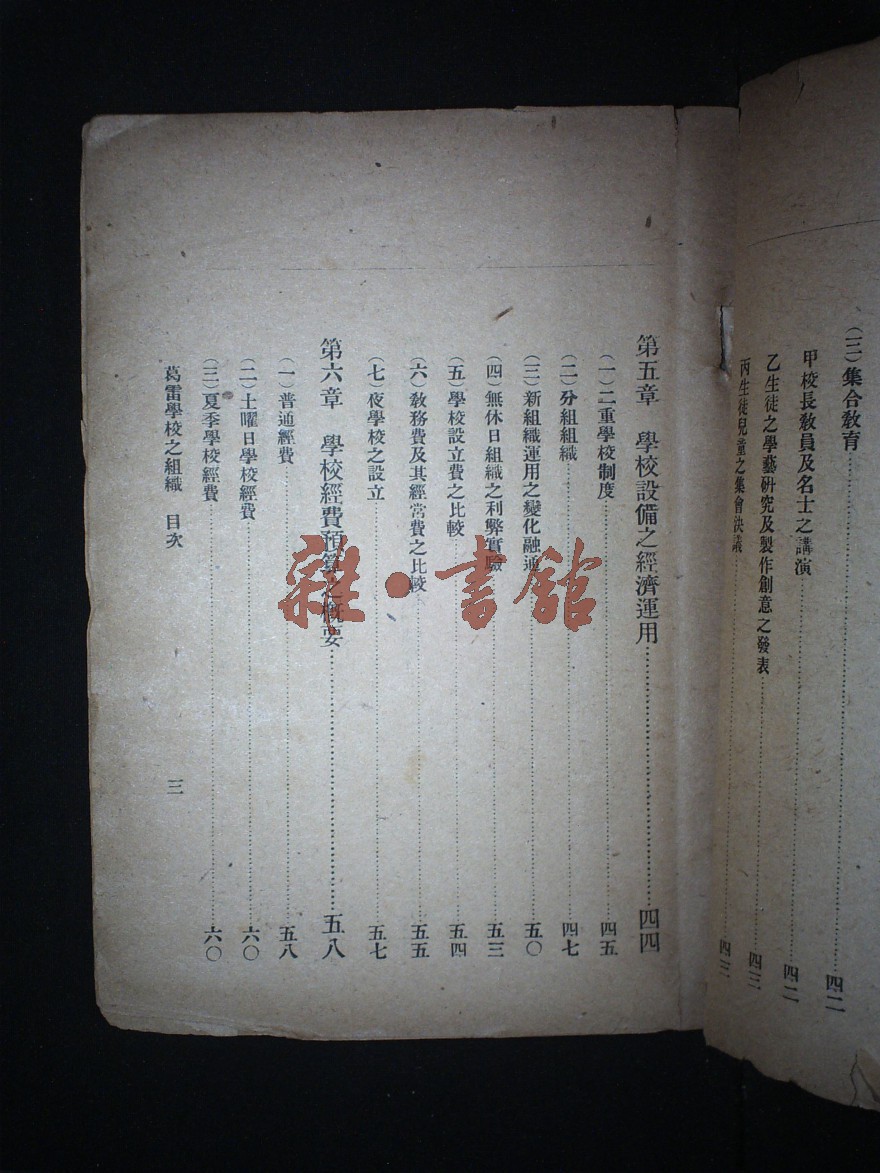 (三)集合教育……四二
甲校長教員及名士之講演……四二
乙生徒之學藝硏究及製作創意之發表……四三
丙生徒兒童之集會決議……四三
第五章　學校設備之經濟運用……四四
(一)二重學校制度……四五
(二)分組組織……四七
(三)新組織運用之變化融通……五〇
(四)無休日組織之利弊實驗……五三
(五)學校設立費之比較……五四
(六)敎務費及其經常費之比較……五五
(七)夜學校之設立……五七
第六章　學校經費預算之概要……五八
(一)普通經費……五八
(二)土曜日學校經費……六〇
(三)夏季學校經費……六〇
葛雷學校之組織　目次
三
雜·書館